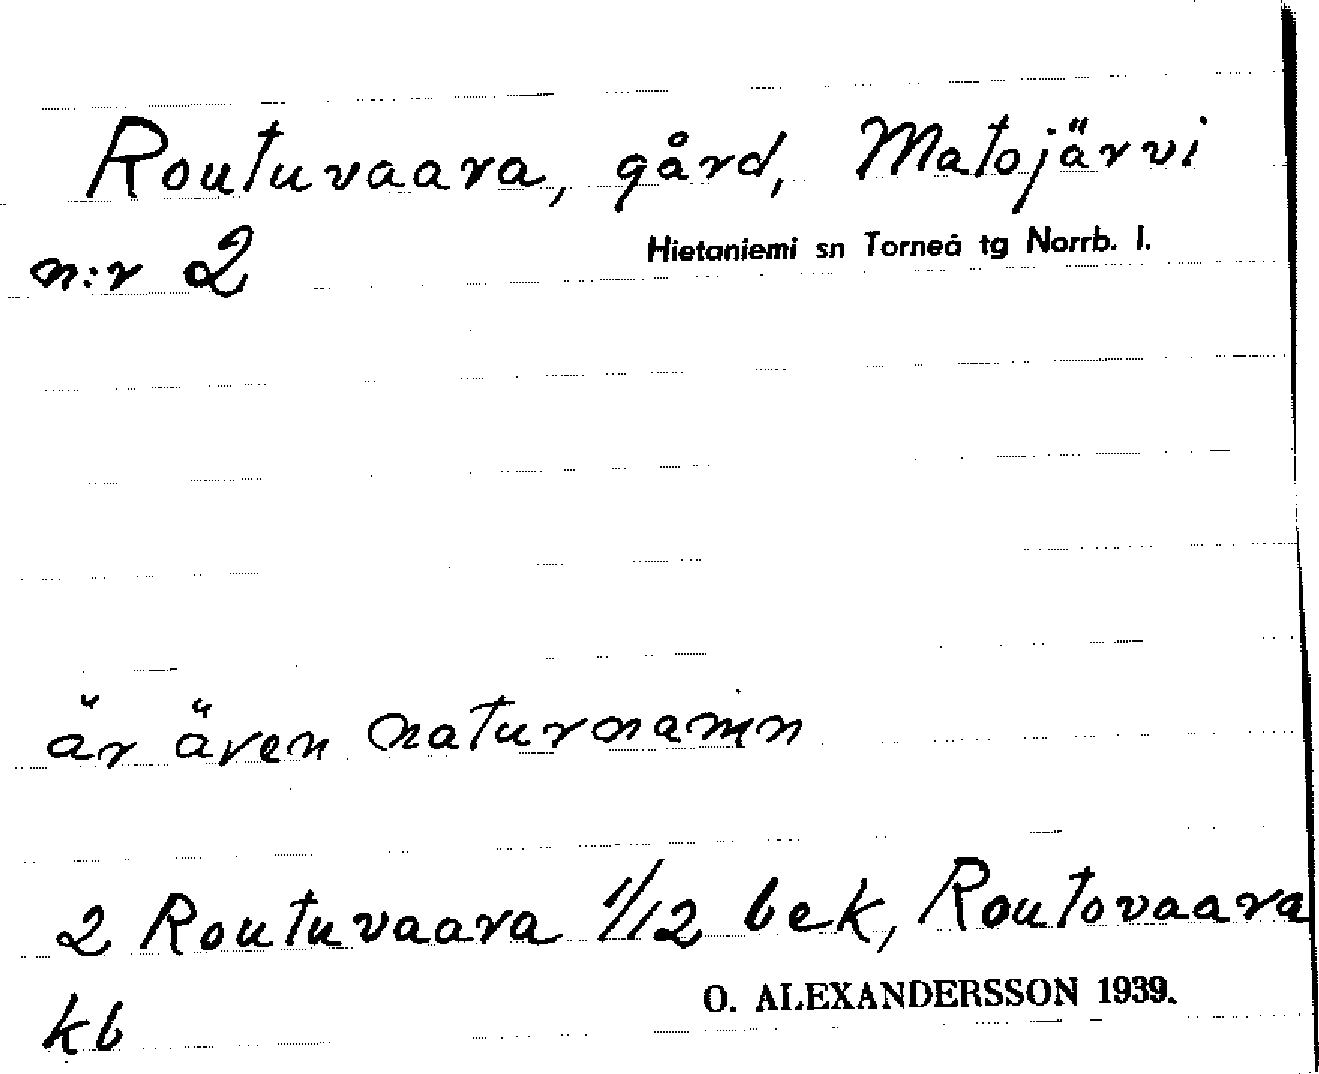 Routuvaara, gård, Matojärvi
n:r 2 Hietaniemi sn Torneå tg Norrb. l.
är även naturnamn
2 Routuvaara 1/12 bek, Routovaara
kb O. ALEXANDERSSON 1939.